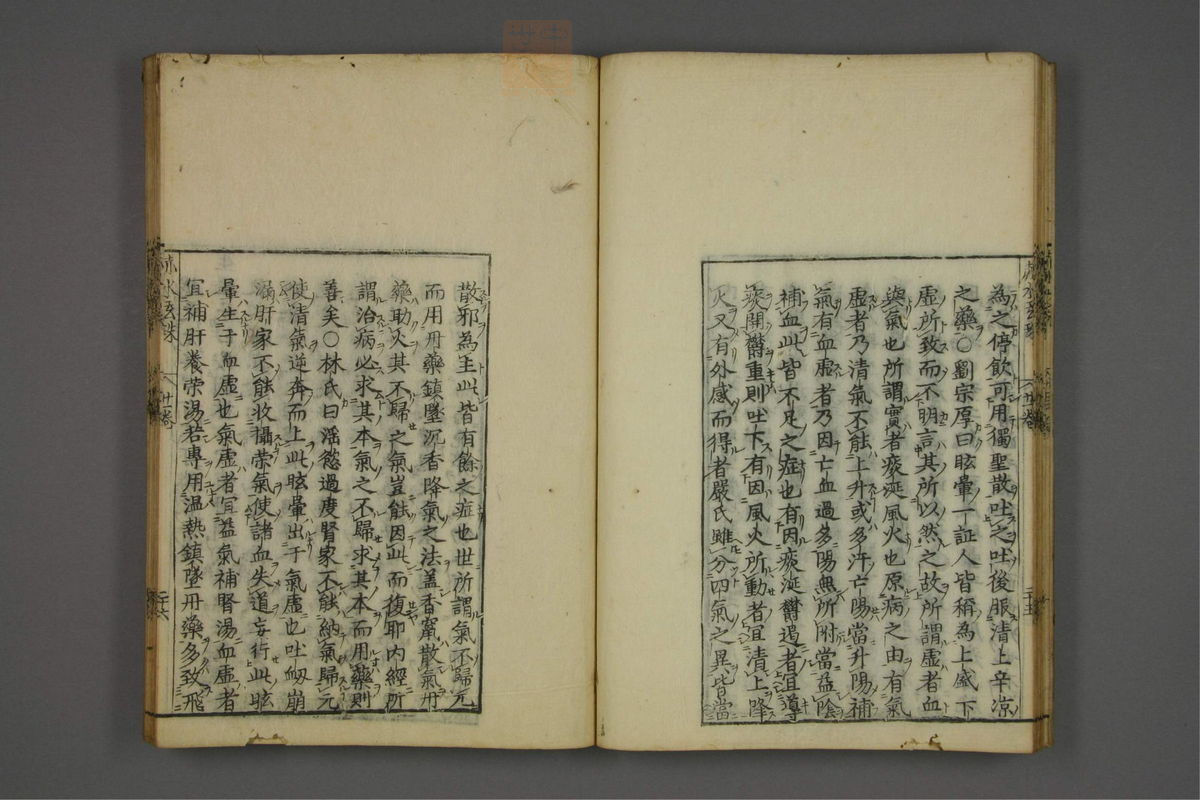 為之停飲可用獨聖散吐之吐後服清上辛凉
之藥○劉宗厚曰眩暈一証人皆稱為上盛下
虛所致而不明言其所以然之故所謂虛者血
與氣也所謂實者痰涎風火也原病之由有氣
虛者乃清氣不能上升或多汗亡陽當升陽補
氣有血虛者乃因亡血過多陽無所附當益陰
補血此皆不足之症也有因痰涎欝遏者宜導
痰開欝重則吐下有因風火所動者宜清上降
火又有外感而得者嚴氏雖分四氣之異皆當
散邪為主此皆有餘之症也世所謂氣不歸元
而用丹藥鎮墜沉香降氣之法盖香竄散氣丹
藥助火其不歸之氣豈能因此而復耶内經所
謂治病必求其本氣之不歸求其本而用藥則
善矣○林氏曰淫慾過度腎家不能納氣歸元
使清氣逆奔而上此眩暈出于氣虛也吐衂崩
漏肝家不能收攝荣氣使諸血失道妄行此眩
暈生于血虛也氣虛者宜益氣補腎湯血虛者
宜補肝養荣湯若專用温熱鎮墜丹藥多致飛
赤水玄珠
廿卷
二十六